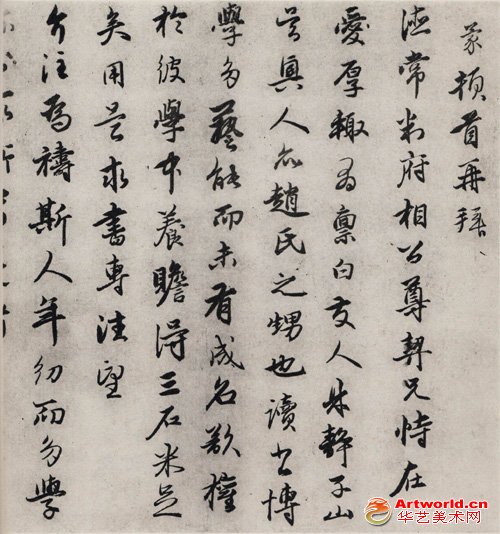 蒙頓首再拜、
德常判府相公尊契兄恃在
愛厚輒為稟白友人林靜子山
吳興人亦趙氏之甥也讀書博
學多藝能而未有成名欲權
於彼學中養贍得三石米足
矣用是求書專注望
介注為禱斯人年幼而多學
Artworld.cn
华艺美术网